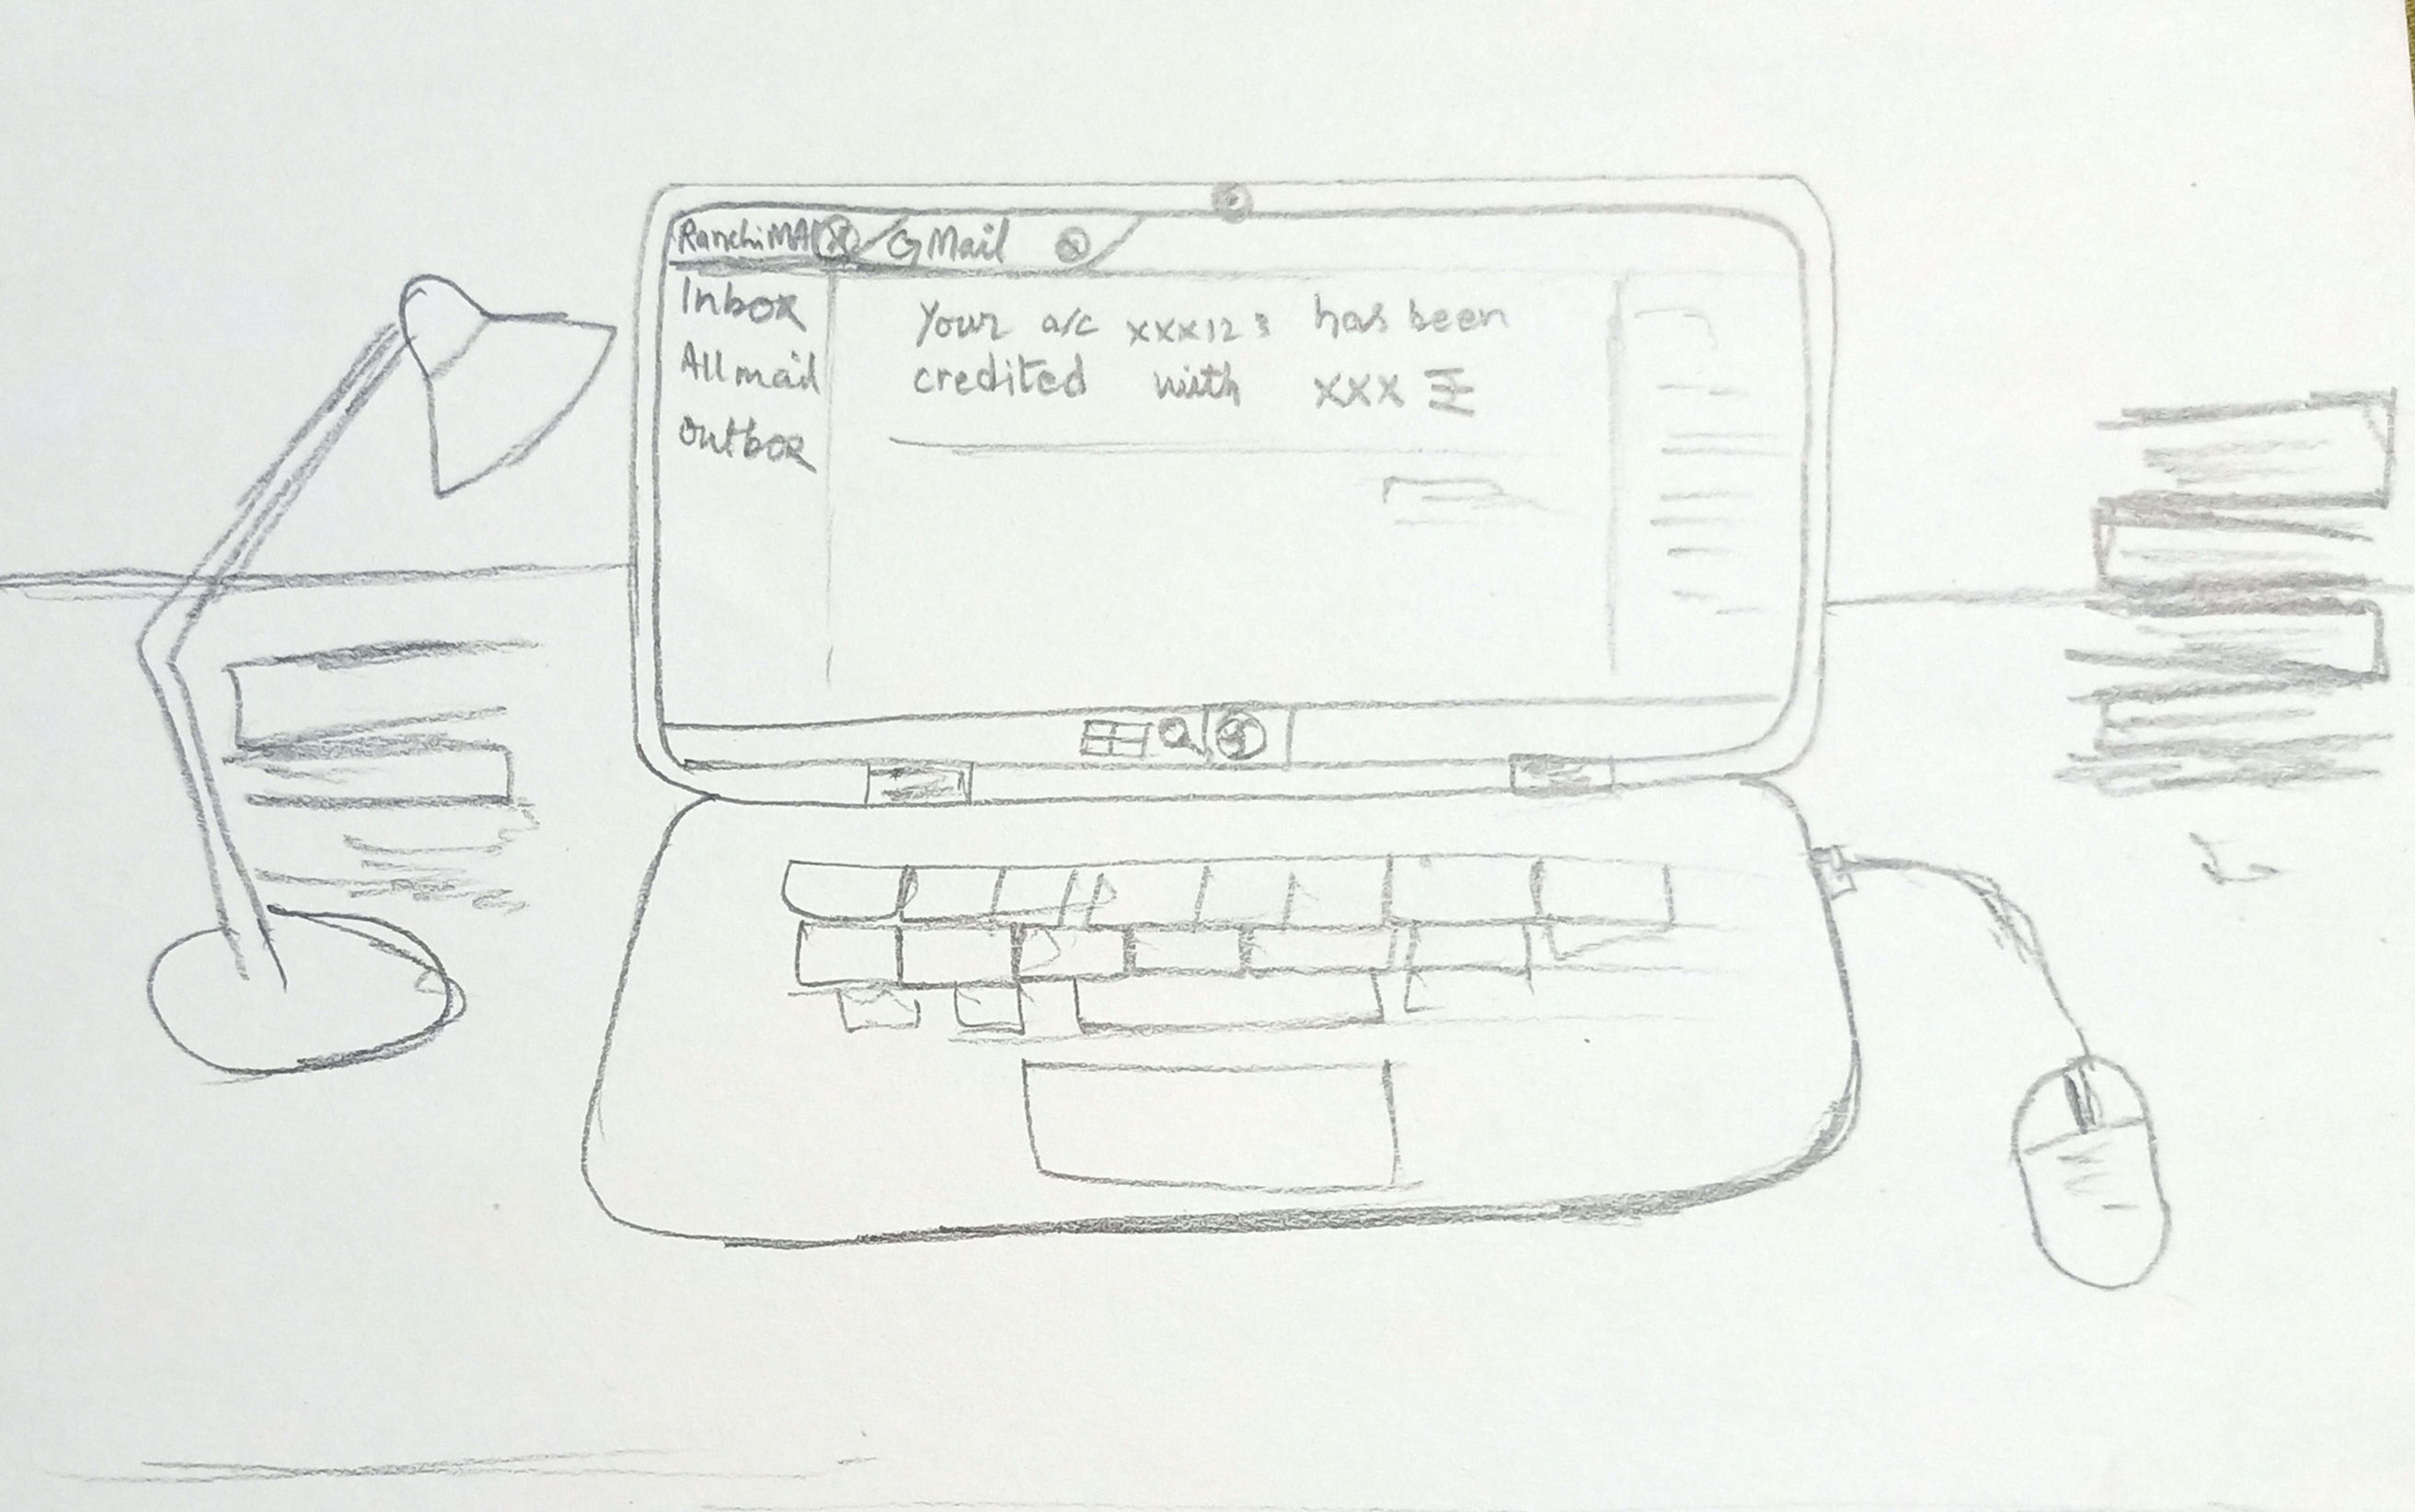 RanchiMA
GMail
Inbox
All mail
Outbox
Your a/c xxx123 has been
credited with xxx